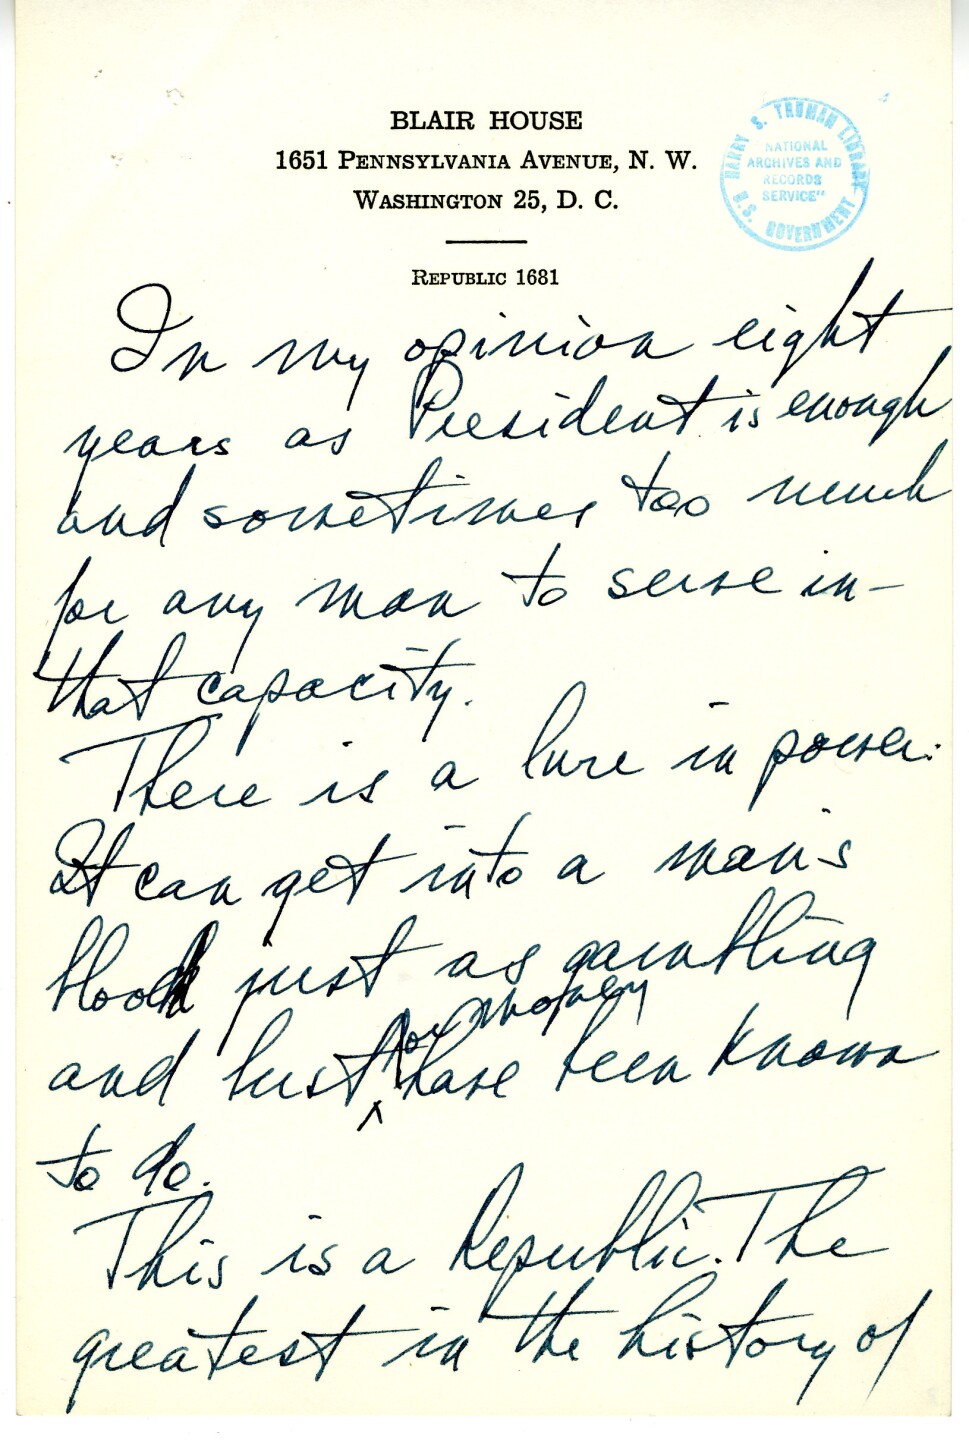 BLAIR HOUSE
1651 PENNSYLVANIA AVENUE, N. W.
WASHINGTON 25, D. C.
REPUBLIC 1681
HARRY S. TRUMAN LIBRARY
"NATIONAL
ARCHIVES AND
RECORDS
SERVICE"
U.S. GOVERNMENT
In my opinion eight
years as President is enough
and sometimes too much
for any man to serve in
that capacity.
There is a lure in power.
It can get into a man's
blood just as gambling
for money
and lust have been known
to do.
This is a Republic. The
greatest in the history of